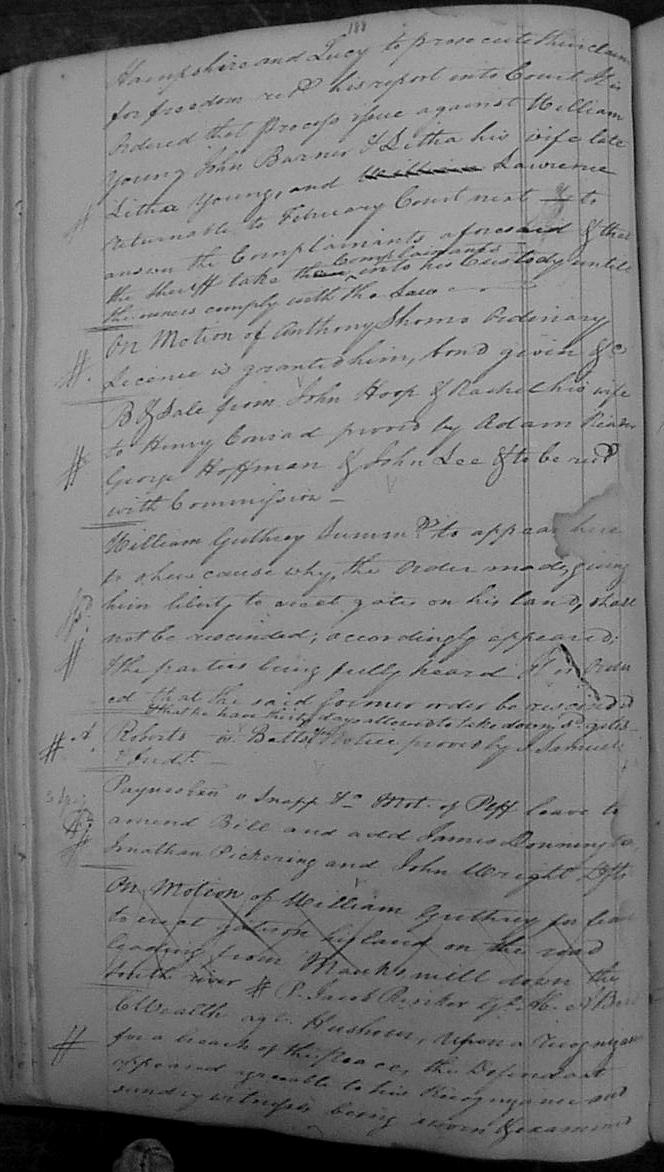 188
Hampshire and Lucy to prosecute their claim
for freedom retd his report into Court It is
Ordered that Process issue against William
Young John Barner & Litha his wife late
Litha Young, and William Lawrence
returnable to February Court next to
answer the Complainants aforesaid & that
the Sheriff take them Complainants into his Custody until
the owners comply with the Law
On Motion of Anthony Shomo Ordinary
Licence is granted him, bond given &c
B & Sale from John Hoop & Rachel his wife
to Henry Conrad proved by Adam
George Hoffman & John Lee & to be red
with Commission
William Guthrey Summd to appear here
to shew cause why, the order made, giving
him liberty to erect gates on his land, shall
not be rescinded; accordingly appeared;
& the parties being fully heard It is Order
ed that the said former order be rescinded
& that he have thirty days allowed to take down sd gates
Roberts v. Betts Notice proved by Samuel
v Snapp &c Mot. of Plff leave to
amend Bill and add James
Jonathan Pickering and John Wright Dfts
On Motion of William Guthrey for leave
to erect gates on his land on the road
leading from Manks mill down the
South river # P. Jacob
C Wealth agt. Hushour, Upon a recognizance
for a breach of the Peace, the Defendant
appeared agreeable to his Recognizance and
sundry witnesses being sworn & examined